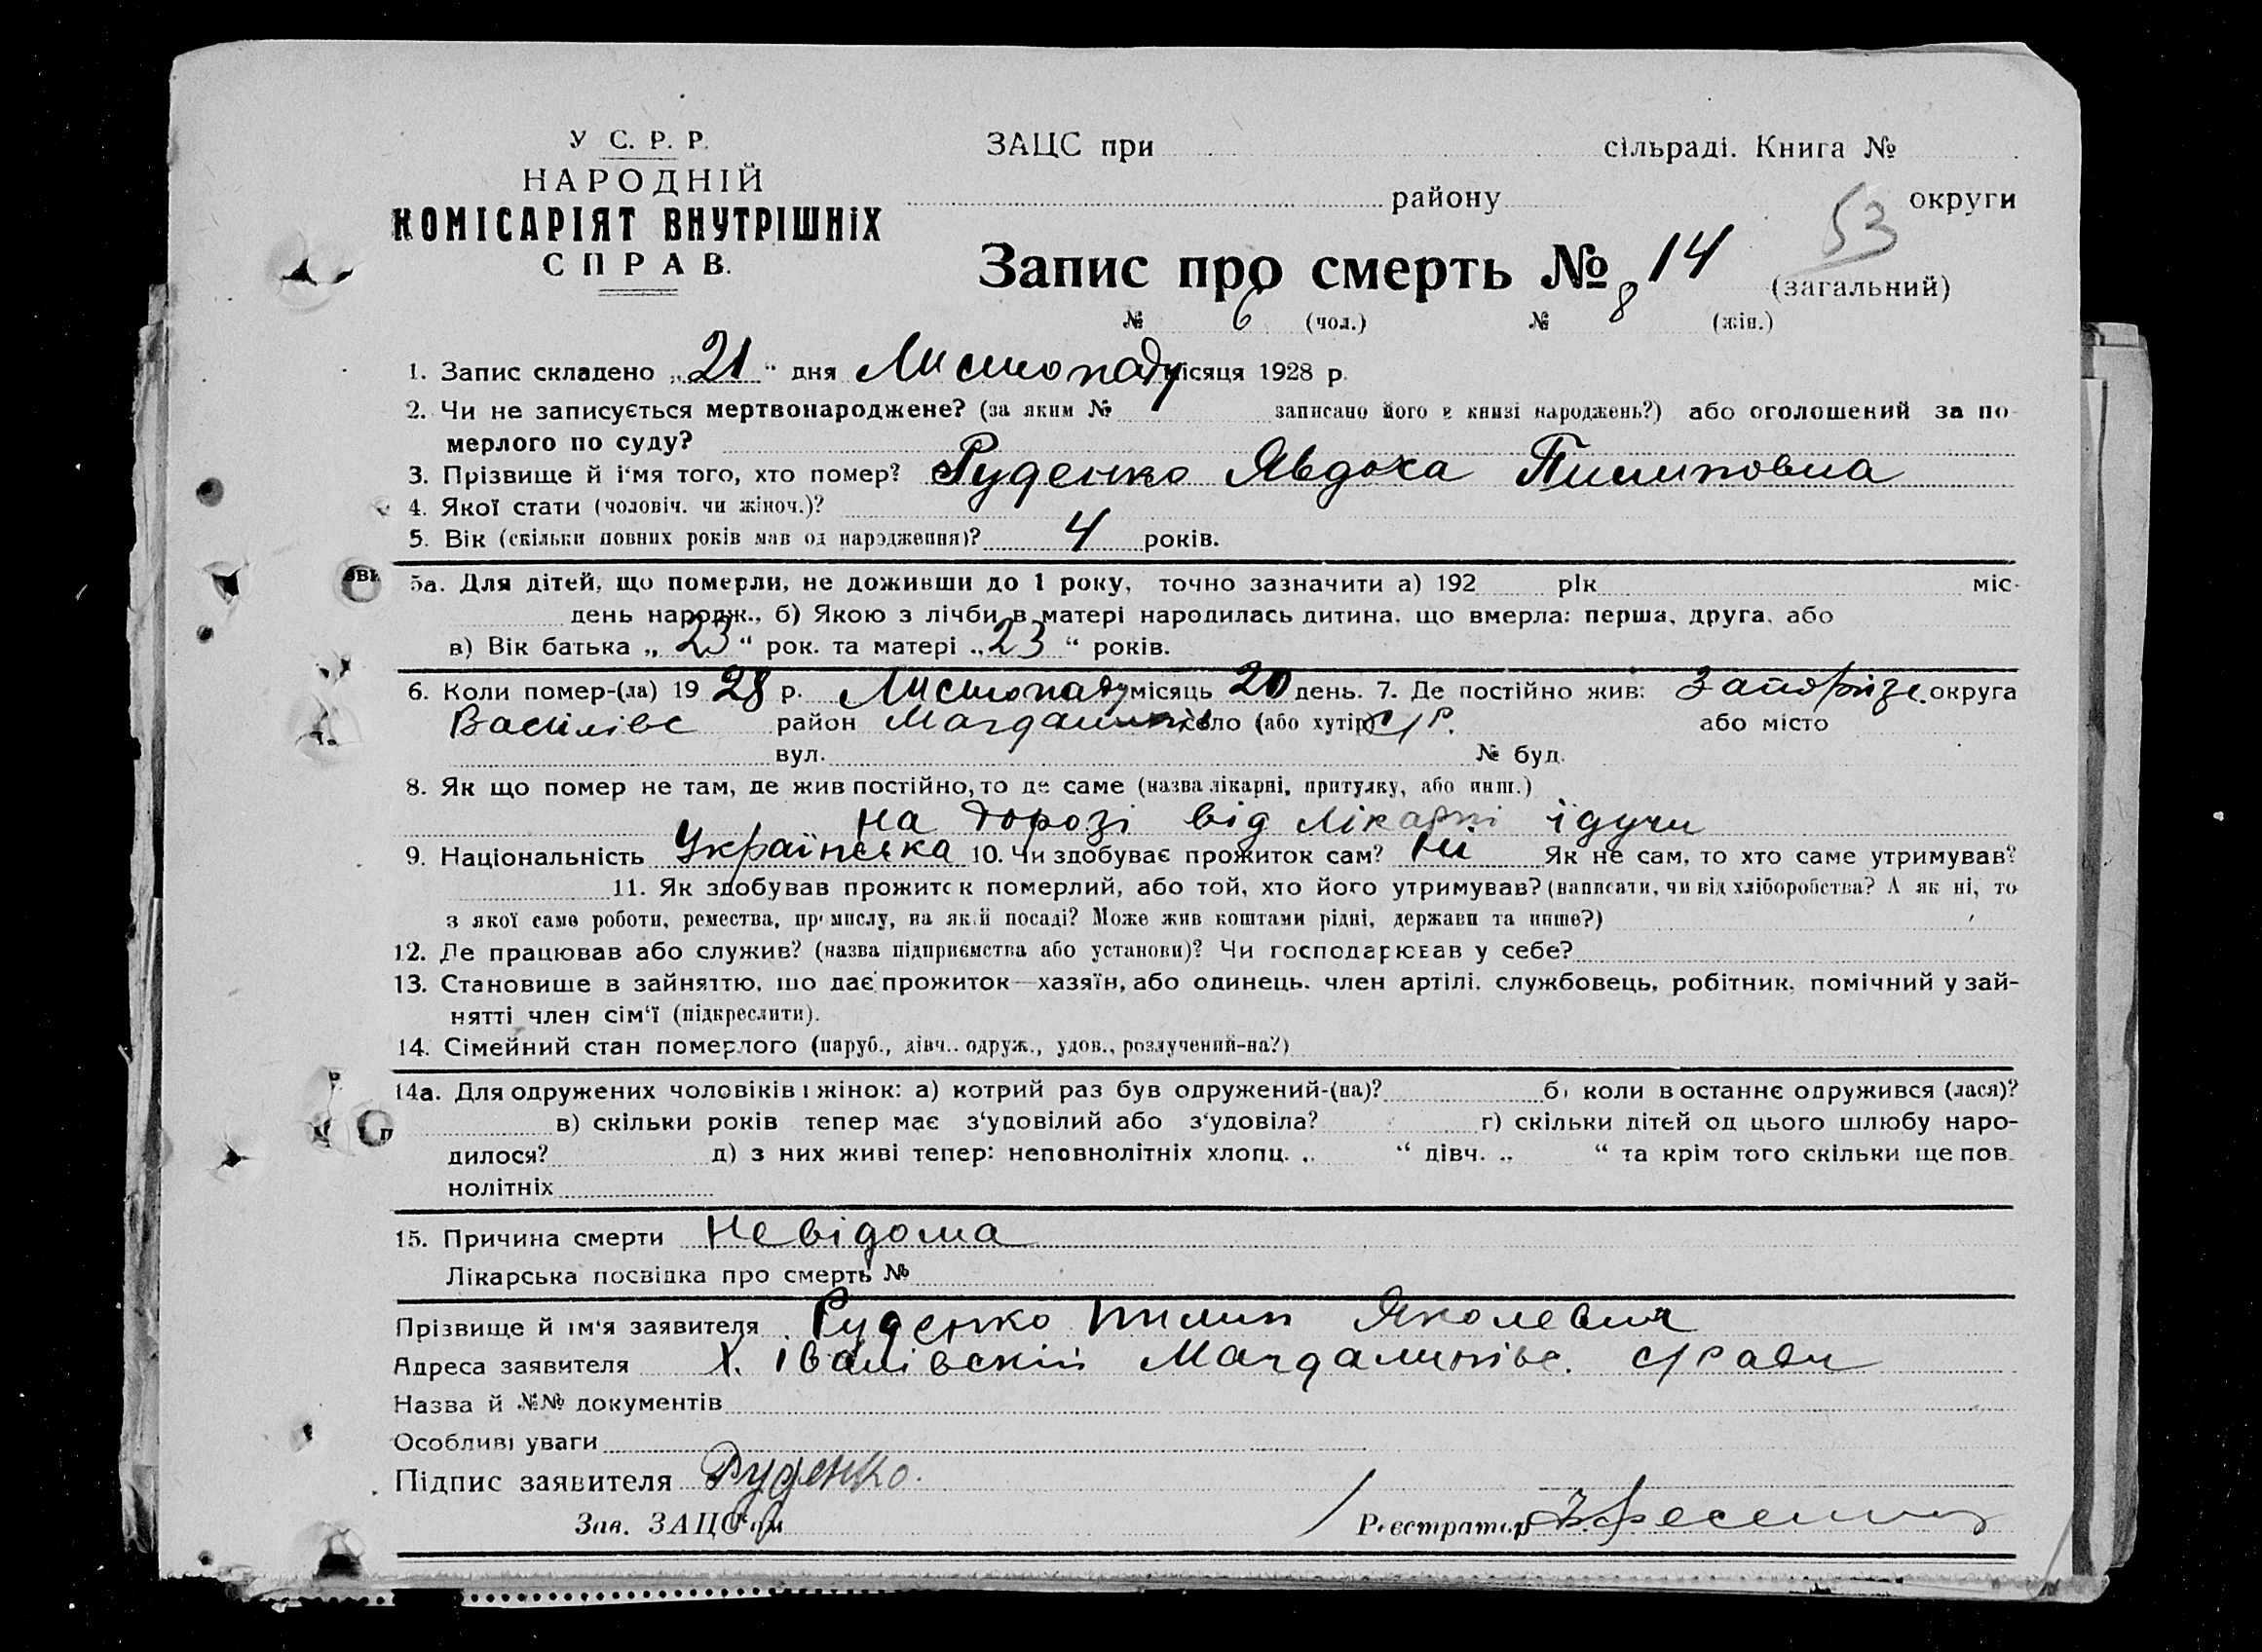 У С. Р. Р.
НАРОДНІЙ
КОМІСАРІЯТ ВНУТРІШНІХ
СПРАВ.
ЗАЦС при сільраді. Книга №
району округи
53
Запис про смерть № 14 (загальний)
№ 6 (чол.) № 8 (жін.)
1. Запис складено „21“ дня Листопаду місяця 1928 р.
2. Чи не записується мертвонароджене? (за яким № записано його в книзі народжень?) або оголошений за по-
мерлого по суду?
3. Прізвище й і‘мя того, хто помер? Руденко Явдоха Пилиповна
4. Якої стати (чоловіч. чи жіноч.)?
5. Вік (скільки повних років мав од народження)? 4 років.
5а. Для дітей, що померли, не доживши до 1 року, точно зазначити а) 192 рік міс.
день народж., б) Якою з лічби в матері народилась дитина, що вмерла: перша, друга, або
в) Вік батька „23“ рок. та матері „23“ років.
6. Коли помер-(ла) 1928 р. Листопаду місяць 20 день. 7. Де постійно жив: Запорізс. округа
Василівс район Магдалинівс село (або хутір) с/р. або місто
вул. № буд.
8. Як що помер не там, де жив постійно, то де саме (назва лікарні, притулку, або инш.)
на дорозі від лікарні їдучи
9. Національність Українська 10. Чи здобуває прожиток сам? Ні Як не сам, то хто саме утримував?
11. Як здобував прожиток померлий, або той, хто його утримував? (написати, чи від хліборобства? А як ні, то
з якої саме роботи, ремества, промислу, на якій посаді? Може жив коштами рідні, держави та инше?)
12. Де працював або служив? (назва підприємства або установи)? Чи господарював у себе?
13. Становище в зайняттю, що дає прожиток—хазяїн, або одинець, член артілі, службовець, робітник, помічний у зай-
нятті член сім‘ї (підкреслити).
14. Сімейний стан померлого (паруб., дівч., одруж., удов., розлучений-на?)
14а. Для одружених чоловіків і жінок: а) котрий раз був одружений-(на)? б) коли в останнє одружився (лася)?
в) скільки років тепер має з‘удовілий або з‘удовіла? г) скільки дітей од цього шлюбу наро-
дилося? д) з них живі тепер: неповнолітніх хлопц. „ “ дівч. „ “ та крім того скільки ще пов-
нолітніх
15. Причина смерти Невідома
Лікарська посвідка про смерть №
Прізвище й ім‘я заявителя Руденко Пилип Яколевич
Адреса заявителя Х. Іванівский Магдалинівс. с/ради
Назва й №№ документів
Особливі уваги
Підпис заявителя Руденко.
Зав. ЗАЦС‘ом Реєстратор